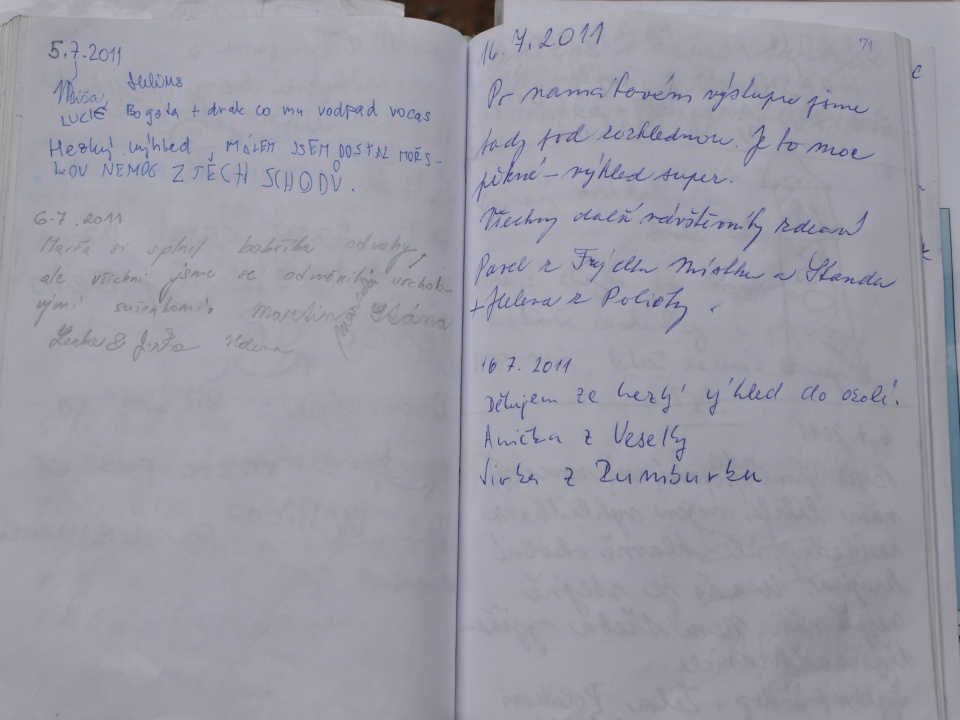 5.7.2011
Míša, Julius
LUCIE Bogota + drak co mu vodpad vocas
Hezký výhled MÁLEM JSEM DOSTAL MOŘS-
KOU NEMOC Z TĚCH SCHODŮ.
6.7.2011
Marta si splnil bobříka odvahy,
ale všichni jsme se odměnili vrchol-
ovými sušenkami. Martin Stána
Lenka & Jirka Helena
71
16.7.2011
Po namátkovém výstupu jsme
tady pod rozhlednou. Je to moc
pěkné – výhled super.
Všechny další návštěvníky zdraví
Pavel z Frýdku Místku a Standa
+ Helena z Poličky.
16.7.2011
Děkujem za hezký výhled do okolí.
Anička z Veselky
Jirka z Rumburku